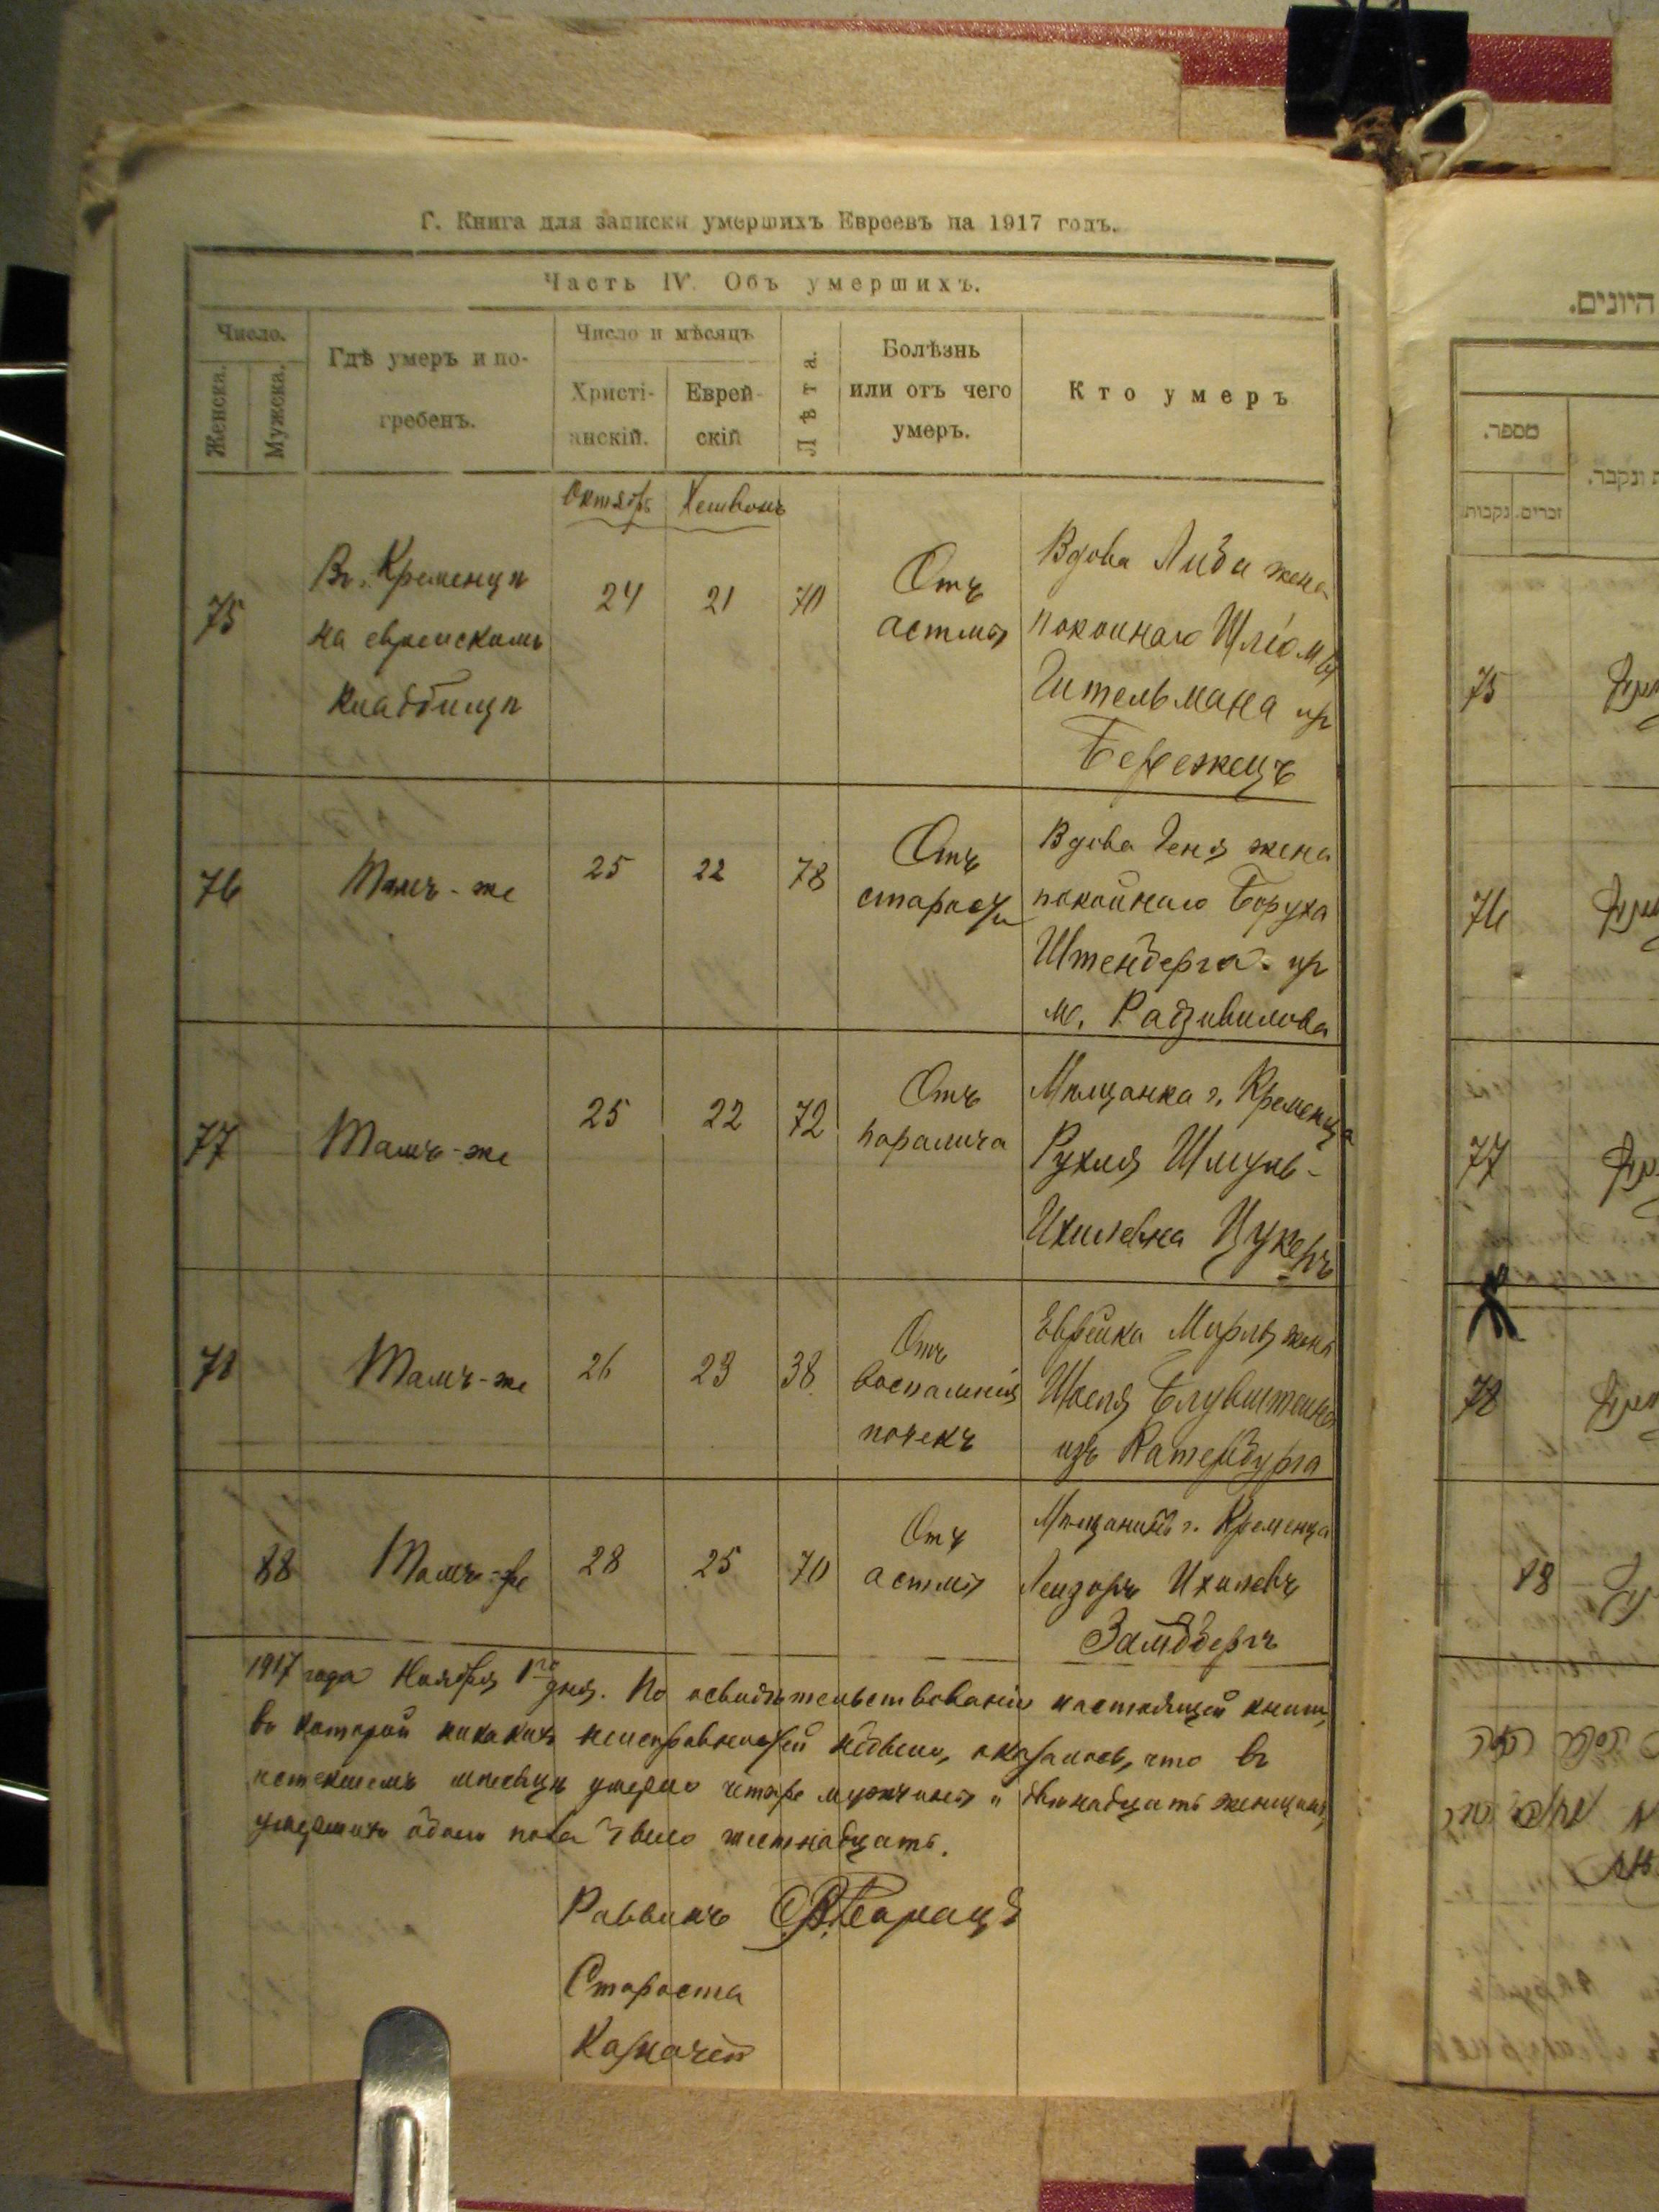 Г. Книга для записки умершихъ Евреевъ на 1917 годъ.
Часть IV. Объ умершихъ.
Число.
Женска.
Мужска.
Гдѣ умеръ и по-
гребенъ.
Число и мѣсяцъ
Христі-
анскій.
Еврей-
скій
Лѣта.
Болѣзнь
или отъ чего
умеръ.
Кто умеръ
Октябрь Хешвонъ
75
Въ Кременцѣ
на еврейскомъ
кладбищѣ
24
21
70
Отъ
астмы
Вдова Либа жена
покойнаго Шлiомы
Гительмана из
Бережецъ
76
Тамъ-же
25
22
78
Отъ
старости
Вдова Геня жена
покойнаго Боруха
Штенберга из
м. Радзивилова
77
Тамъ-же
25
22
72
Отъ
паралича
Мѣщанка г. Кременца
Рухля Шмуль-
Ихилевна Цукеръ
78
Тамъ-же
26
23
38
Отъ
воспаленія
почекъ
Еврейка Мирля жена
Блувштейна
изъ Катербурга
88
Тамъ-же
28
25
70
Отъ
астмы
Мѣщанинъ г. Кременца
Лейзоръ Ихилевъ
Замдбергъ
1917 года Ноября 1го дня. По освидѣтельствованію настоящей книги,
въ которой никакихъ неисправностей небыло, оказалось, что въ
истекшемъ мѣсяцѣ умерло четыре мужчины и двѣнадцать женщинъ,
умершихъ обоего пола было шестнадцать.
Раввинъ
Староста
Казначей
היונים.
מספר.
נקבות.
זכרים.
ונקבר.
75
76
77
78
88